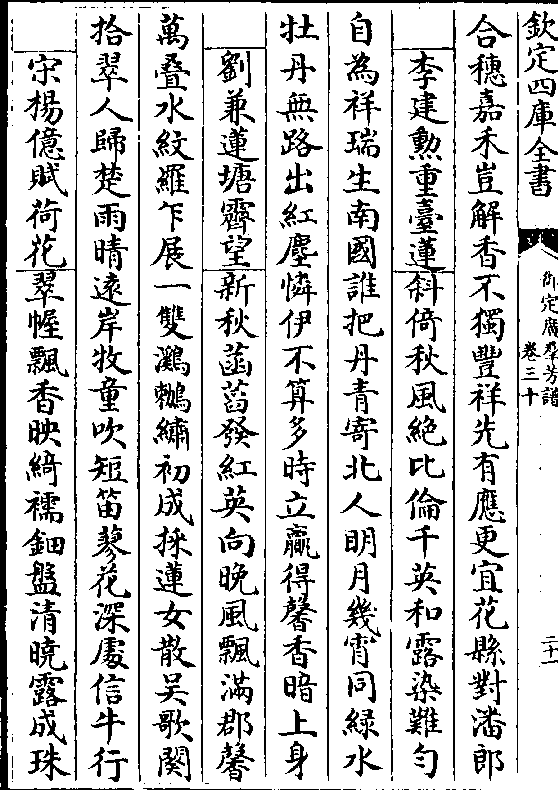 欽定四庫全書
御定廣羣芳譜
卷三十
二十一
合穗嘉禾豈解香不獨豐祥先有應更宜花縣對潘郎
李建勲重臺蓮斜倚秋風絶比倫千英和露染難勻
自為祥瑞生南國誰把丹青寄北人明月幾宵同緑水
牡丹無路出紅塵憐伊不算多時立贏得馨香暗上身
劉兼蓮塘霽望新秋菡萏發紅英向晚風飄滿郡馨
萬疊水紋羅乍展一雙鸂鶒繡初成採蓮女散吴歌闋
拾翠人歸楚雨晴遠岸牧童吹短笛蓼花深處信牛行
宋楊億賦荷花翠幄飄香映綺襦鈿盤清曉露成珠